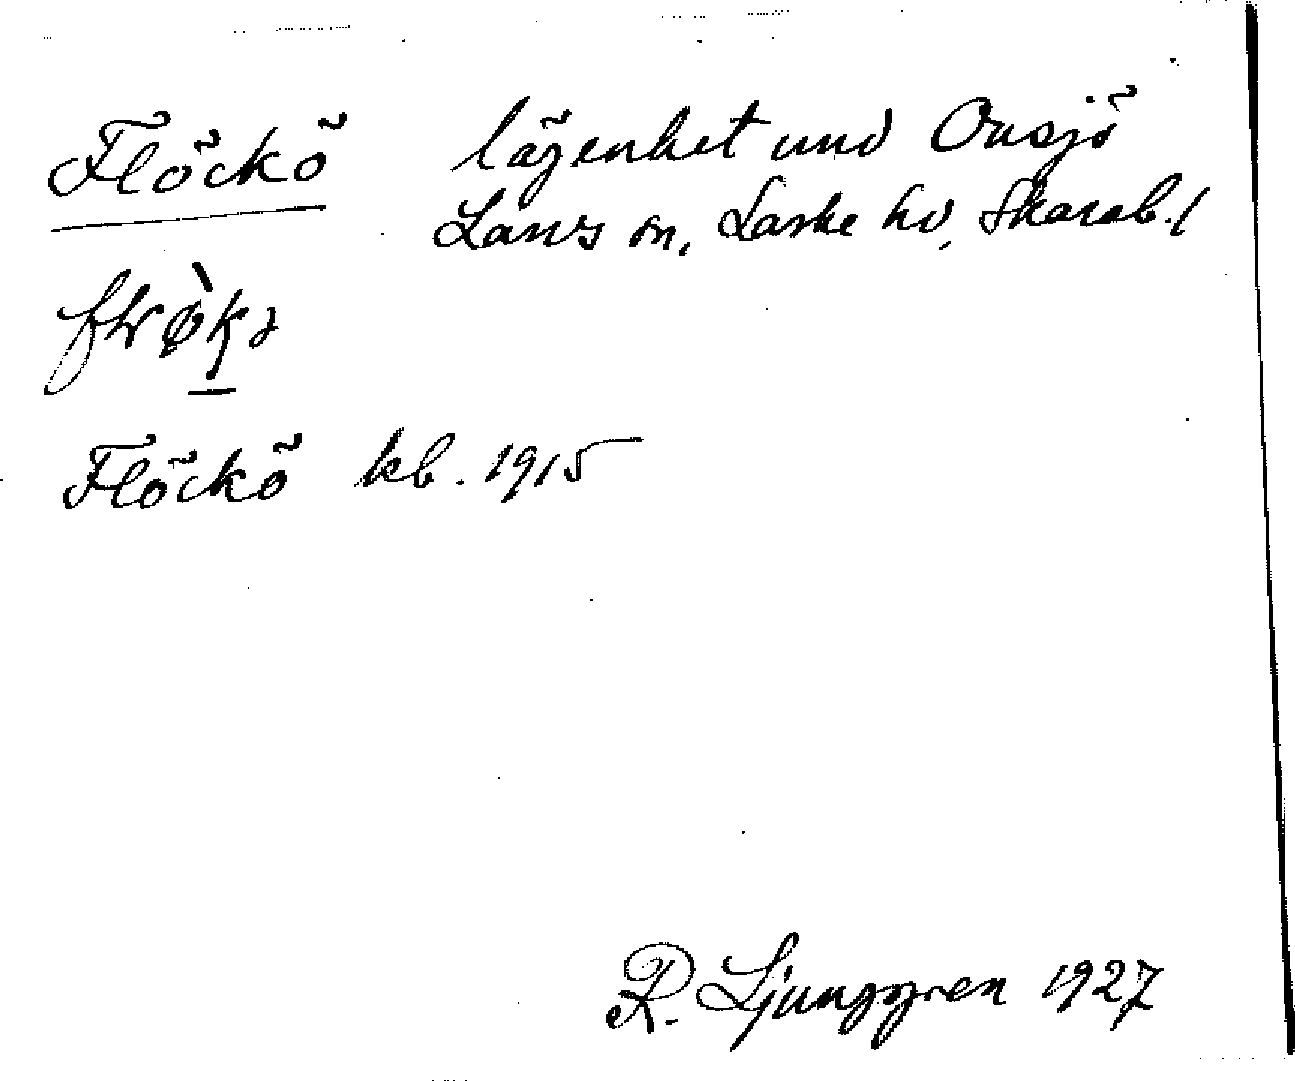 Flöckö lägenhet und Onsjö
Lavs sn, Laske hd, Skarab. l
Flöckö kb. 1915
R. Ljunggren 1927